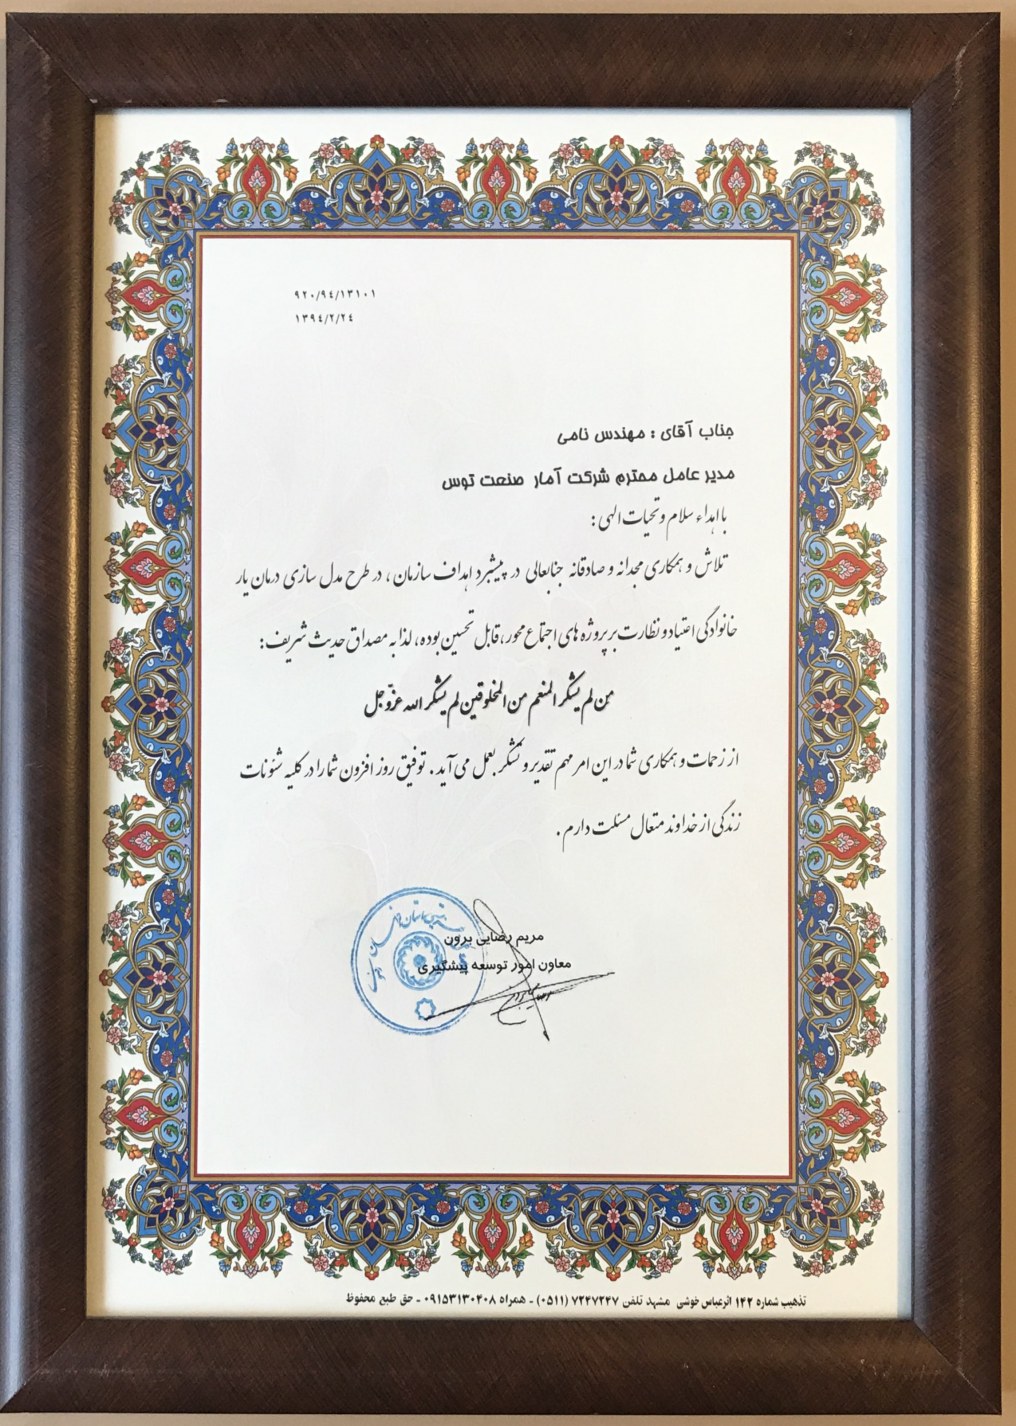 ۹۲۰/۹٤/۱۳۱۰۱
۱۳۹٤/۲/۲٤
جناب آقای : مهندس نامی
مدیر عامل محترم شرکت آمار صنعت توس
با اهداء سلام و تحیات الهی :
تلاش و همکاری مجدانه و صادقانه جنابعالی در پیشبرد اهداف سازمان ، در طرح مدل سازی درمان یار
خانوادگی اعتیاد و نظارت بر پروژه های اجتماع محور ، قابل تحسین بوده، لذا به مصداق حدیث شریف :
من لم یشکر المنعم من المخلوقین لم یشکر الله عزّوجل
از زحمات و همکاری شما در این امر مهم تقدیر و تشکر بعمل می آید . توفیق روز افزون شما را در کلیه شئونات
زندگی از خداوند متعال مسئلت دارم .
مریم رضایی برون
معاون امور توسعه پیشگیری
تذهیب شماره ۱۴۲ اثرعباس خوشی مشهد تلفن ۷۲۴۷۲۴۷ (۰۵۱۱) - همراه ۰۹۱۵۳۱۳۰۴۰۸ - حق طبع محفوظ